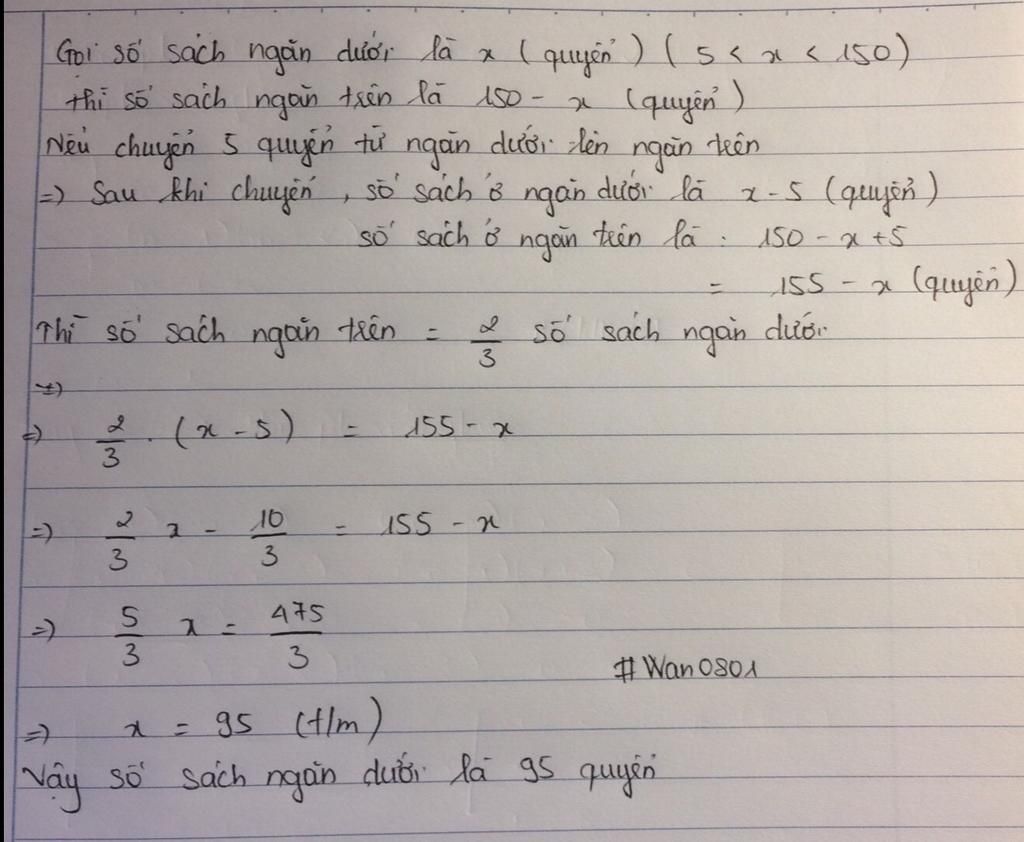 Gọi số sách ngăn dưới là x (quyển) (5 < x < 150)
thì số sách ngăn trên là 150 - x (quyển)
Nếu chuyển 5 quyển từ ngăn dưới lên ngăn trên
=) Sau khi chuyển, số sách ở ngăn dưới là x - 5 (quyển)
số sách ở ngăn trên là : 150 - x + 5
= 155 - x (quyển)
Thì số sách ngăn trên = 2/3 số sách ngăn dưới
=)
=) 2/3 . (x - 5) = 155 - x
=) 2/3 x - 10/3 = 155 - x
=) 5/3 x = 475/3
#Wan0801
=) x = 95 (t/m)
Vậy số sách ngăn dưới là 95 quyển